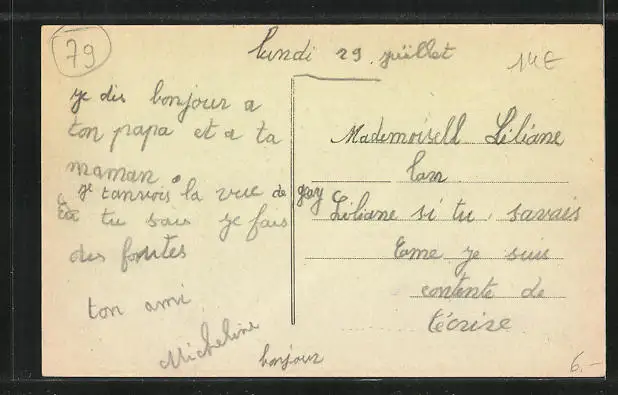 79
lundi 29 juillet
14€
je dis bonjour a
ton papa et a ta
maman.
je tanvois la vue de gay
tu sais je fais
des foutes
ton ami
Micheline
bonjour
Mademoisell Liliane
lan
Liliane si tu savais
come je suis
contente de
técrire
6.-